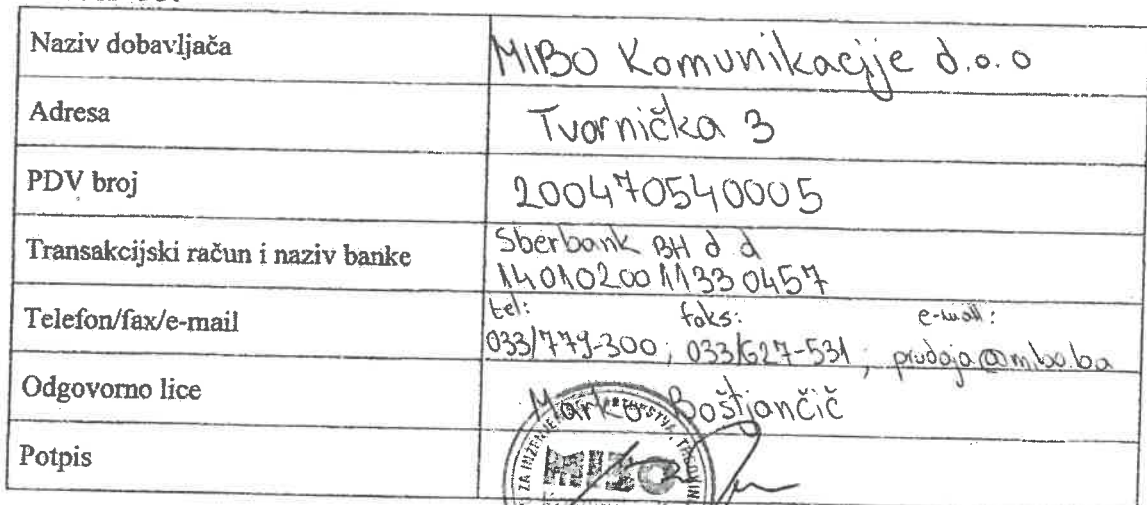 Naziv dobavljača MIBO Komunikacije d.o.o
Adresa Tvornička 3
PDV broj 200470540005
Transakcijski račun i naziv banke Sberbank BH d d
1401020011330457
Telefon/fax/e-mail tel: faks: e-mail:
033/779-300; 033/627-531; prodaja@mibo.ba
Odgovorno lice Marko Boštjančič
Potpis
ZA INŽENJE
MIBO